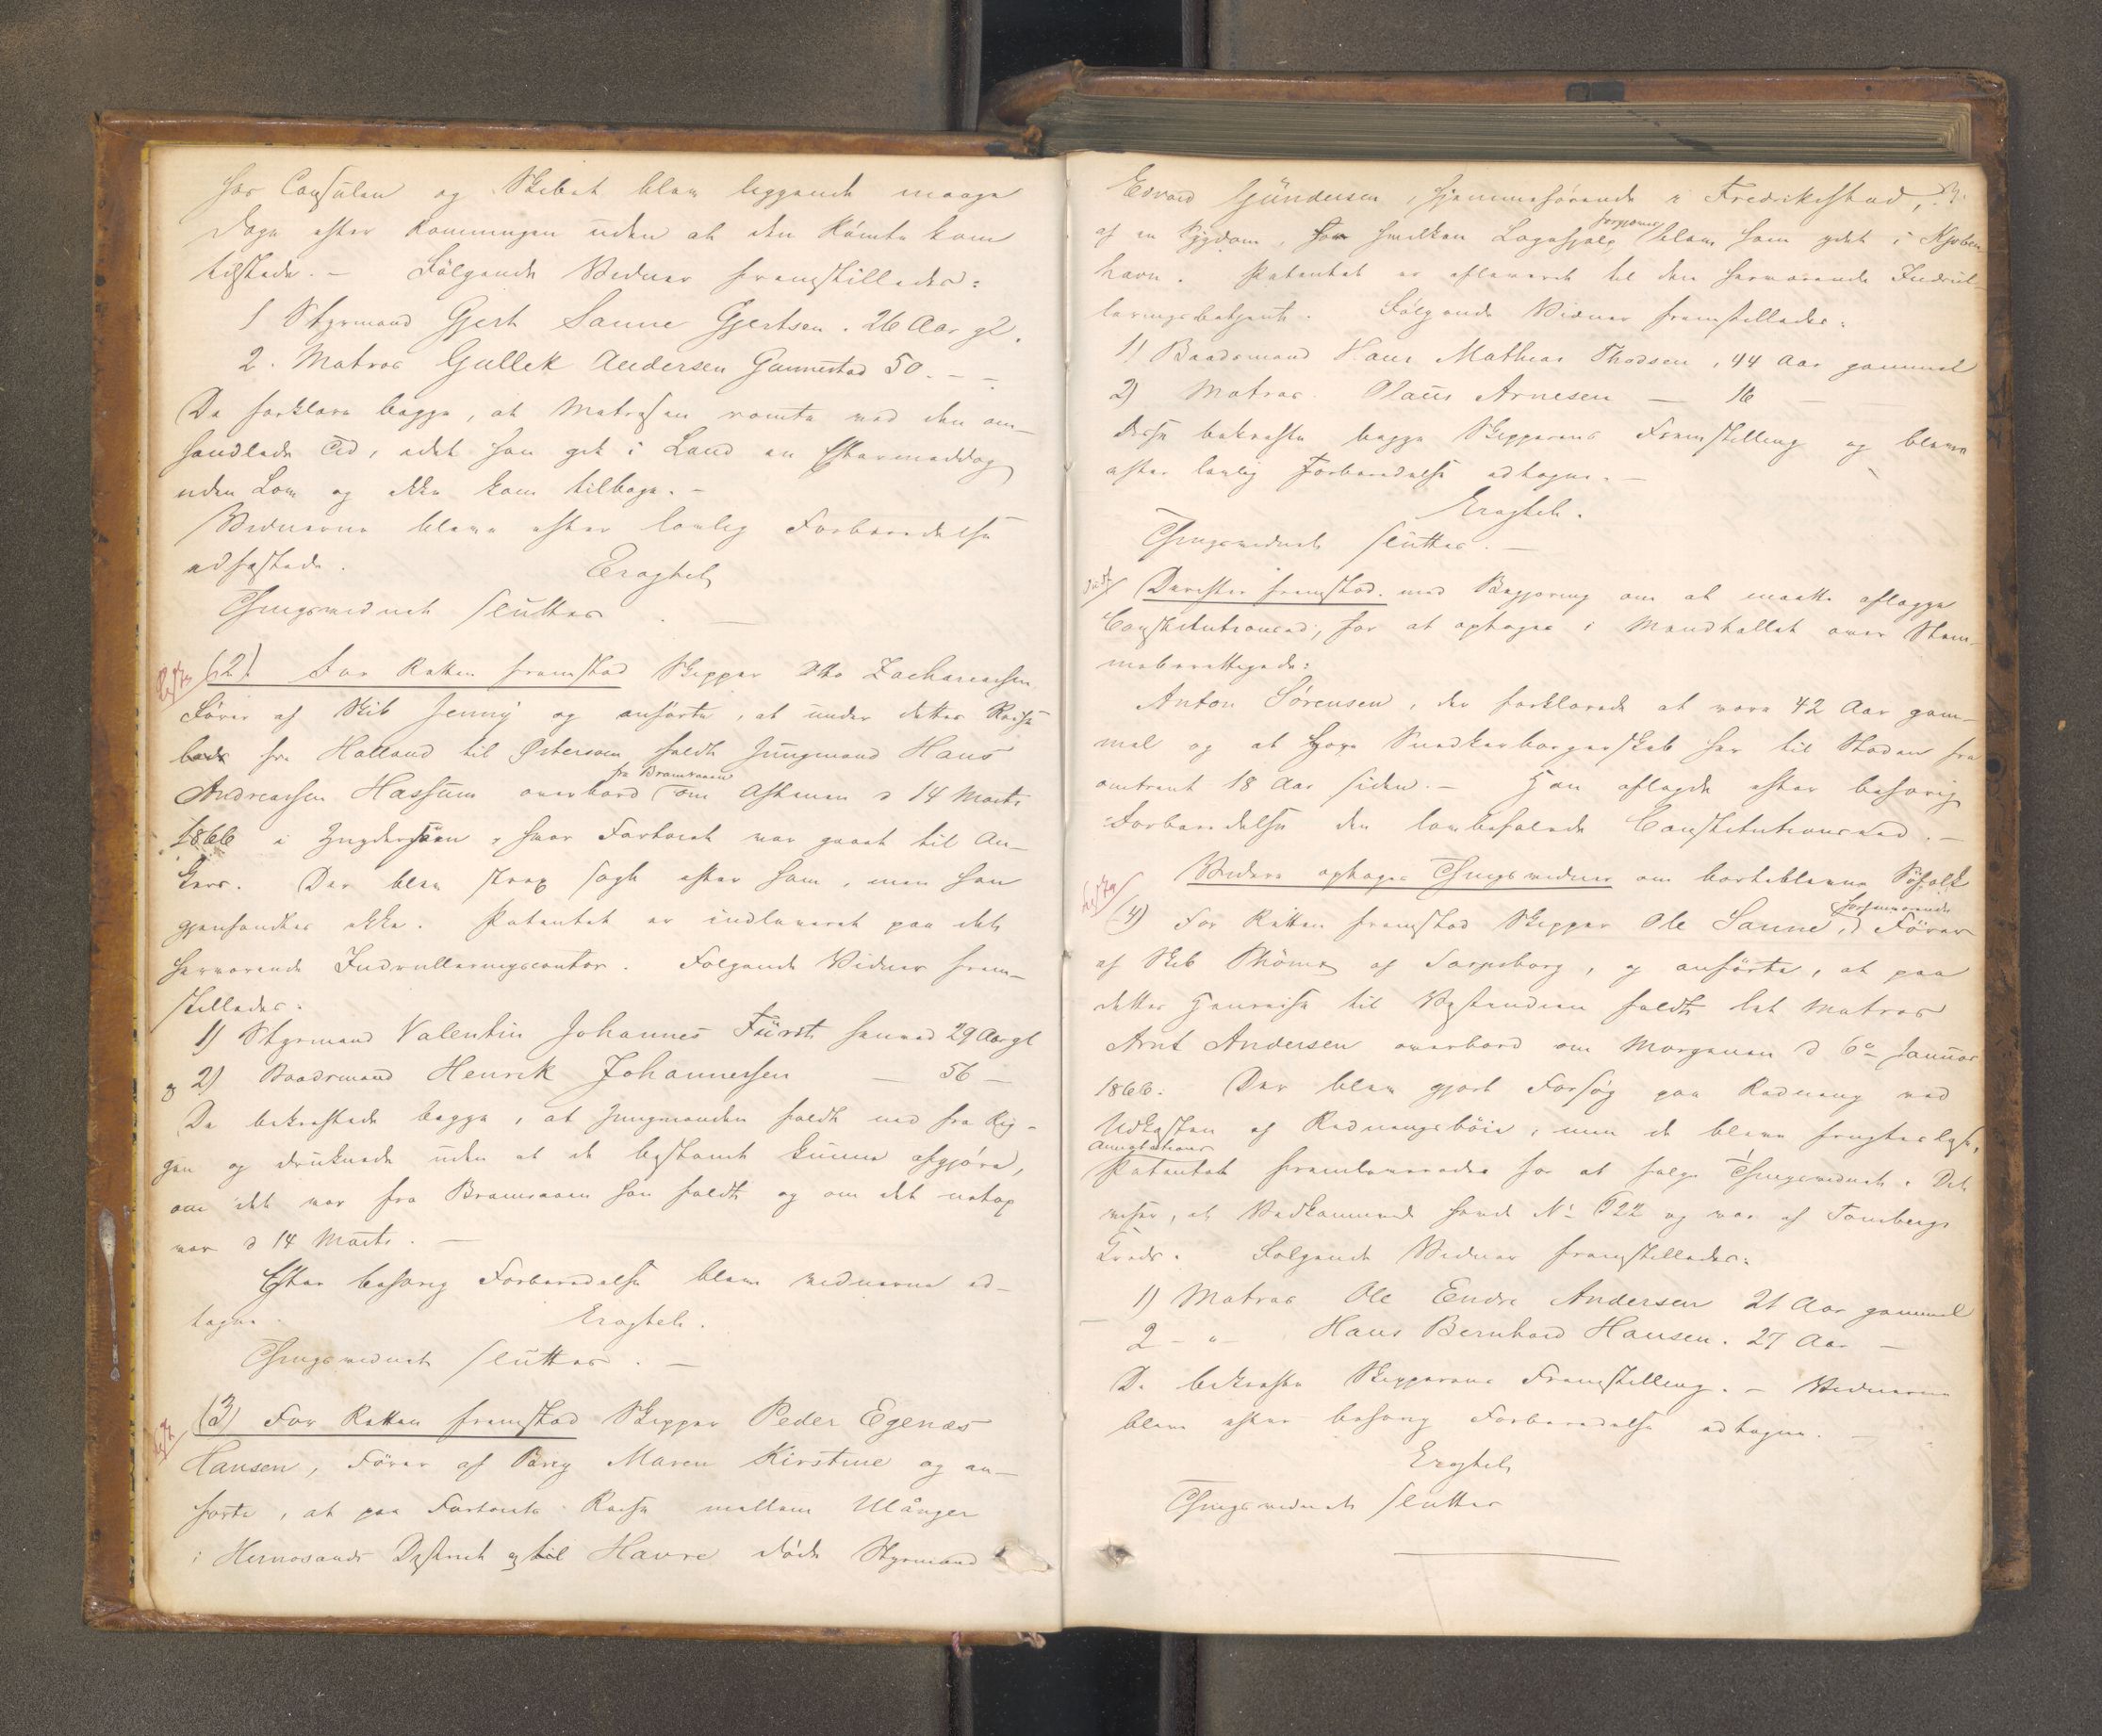 hos Consulen og Skibet blev liggende mange
Dage efter Rømningen uden at den Rømte kom
tilstede. – Følgende Vidner fremstilledes:
1 Styrmand Gjert Sanne Gjertsen. 26 Aar gl.
2. Matros Gullek Andersen Gunnestad 50. – –
De forklare begge, at Matrosen rømte ved den om-
handlede Tid, idet han gik i Land en Eftermiddag
uden Lov og ikke kom tilbage. –
Vidnerne bleve efter lovlig Forberedelse
edfæstede. Eragtet
Thingsvidnet sluttes. –
(2) For Retten fremstod Skipper Otto Zachariassen
Fører af Skib Jenny og anførte, at under dettes Reise
fra Holland til Østersøen faldt Jungmand Hans
fra Bramraaen
Andreassen Hassum overbord om Aftenen d 14 Marts
1866 i Zuydersøen, hvor Fartøiet var gaaet til An-
kers. Der blev strax søgt efter ham, men han
gjenfandtes ikke. Patentet er indleveret paa det
herværende Indrulleringscontor. Følgende Vidner frem-
stilledes:
1) Styrmand Valentin Johannes Fürst 29 Aar gl
og 2) Baadsmand Henrik Johannessen – 56 –
De bekræftede begge, at Jungmanden faldt ned fra Rig-
gen og druknede uden at de bestemt kunne afgjøre,
om det var fra Bramraaen han faldt og om det netop
var d 14 Marts. –
Efter behørig Forberedelse bleve vidnerne ed-
tagne. Eragtet.
Thingsvidnet sluttes. –
(3) For Retten fremstod Skipper Peder Egenæs
Hansen, Fører af Brig Maren Kirstine og an-
førte, at paa Fartøiets Reise mellem Ulånger
i Hernosands District og til Havre døde Styrmand
3.
Edvard Gundersen, hjemmehørende i Fredrikstad,
forgjæves
af en Sygdom, for hvilken Lægehjælp blev ham ydet i Kjøben-
havn. Patentet er afleveret til den herværende Indrul-
leringsbetjent. Følgende Vidner fremstilledes:
1) Baadsmand Hans Mathias Thodsen, 44 Aar gammel
2) Matros Olaus Arnesen – 16 –
Disse bekræfte begge Skipperens Fremstilling og bleve
efter lovlig Forberedelse edtagne. –
Eragtet.
Thingsvidnet sluttes. –
Derefter fremstod med Begjæring om at maatte aflægge
Constitutionsed, for at optages i Mandtallet over Stem-
meberettigede:
Anton Sørensen, der forklarede at være 42 Aar gam-
mel og at have Snedkerborgerskab her til Staden fra
omtrent 18 Aar siden. – Han aflagde efter behørig
Forberedelse den lovbefalede Constitutionsed. –
Videre optages Thingsvidner om borteblevne Søfolk
forhenværende
(4) For Retten fremstod Skipper Ole Sanne, Fører
af Skib af Sarpsborg, og anførte, at paa
dettes Henreise til Vestindien faldt let Matros
Arnt Andersen overbord om Morgenen d 6te Januar
1866. Der blev gjort Forsøg paa Redning ved
Udkasten af Redningsbøie, men de bleve frugtesløse.
Annotations
Patentet fremleveredes for at følge Thingsvidnet. Det
viser, at Vedkommende havde No 622 og var af Tønsbergs
Kreds. Følgende Vidner fremstilledes:
1) Matros Ole Endre Andersen 21 Aar gammel
2 – " – Hans Bernhard Hansen. 27 Aar –
De bekræfte Skipperens Fremstilling. – Vidnerne
bleve efter behørig Forberedelse edtagne. –
Eragtet
Thingsvidnet sluttes